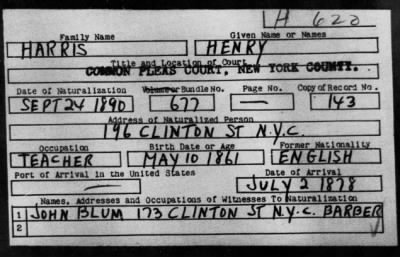 H 620
Family Name Given Name or Names
HARRIS HENRY
Title and Location of Court
COMMON PLEAS COURT, NEW YORK COUNTY.
Date of Naturalization Volume or Bundle No. Page No. Copy of Record No.
SEPT 24 1890 677 — 143
Address of Naturalized Person
196 CLINTON ST N.Y.C.
Occupation Birth Date or Age Former Nationality
TEACHER MAY 10 1861 ENGLISH
Port of Arrival in the United States Date of Arrival
— JULY 2 1878
Names, Addresses and Occupations of Witnesses To Naturalization
1 JOHN BLUM 173 CLINTON ST N.Y.C. BARBER
2